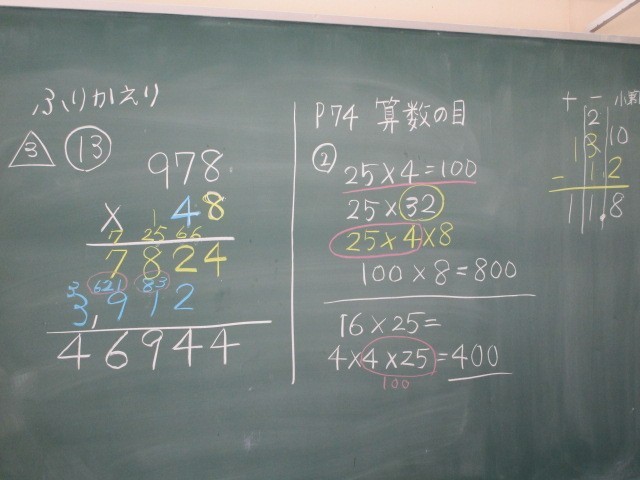 ふりかえり
3 13
978
× 48
7 25 66
7824
3 621 83
3,912
46944
P74 算数の目
2 25×4=100
25×32
25×4×8
100×8=800
16×25=
4×4×25=400
100
十 一
2
13 10
- 1.2
11.8